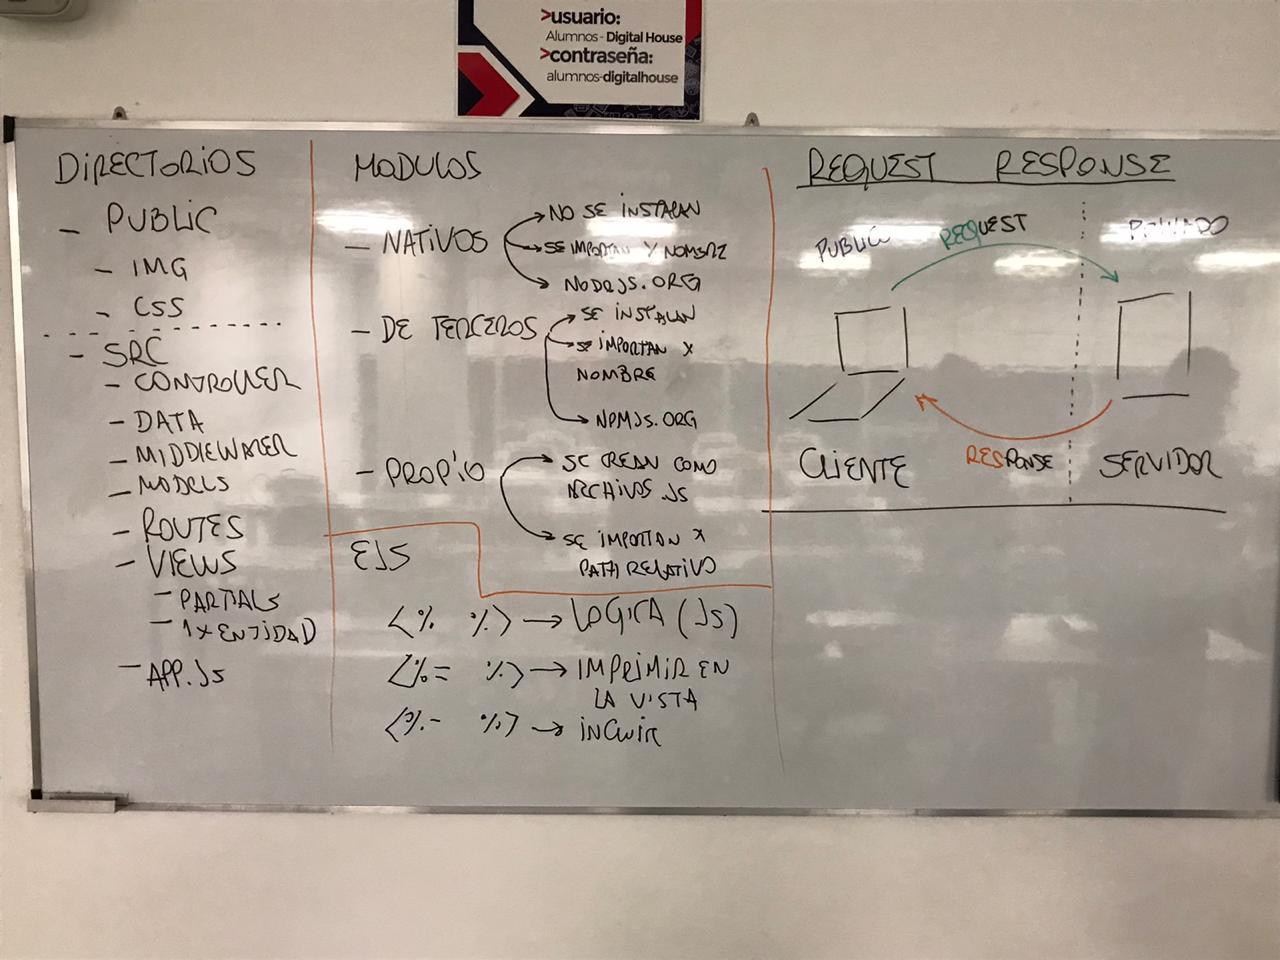 >usuario:
Alumnos - Digital House
>contraseña:
alumnos-digitalhouse
DIRECTORIOS
- PUBLIC
- IMG
- CSS
- SRC
- CONTROLLER
- DATA
- MIDDLEWARER
- MODELS
- ROUTES
- VIEWS
- PARTIALS
- 1 X ENTIDAD
- APP.JS
MODULOS
- NATIVOS
NO SE INSTALAN
SE IMPORTAN Y NOMBRE
NODEJS.ORG
- DE TERCEROS
SE INSTALAN
SE IMPORTAN X
NOMBRE
NPMJS.ORG
- PROPIO
SE CREAN COMO
ARCHIVOS JS
SE IMPORTAN X
PATH RELATIVO
EJS
<% %> → LOGICA (JS)
<%= %> → IMPRIMIR EN
LA VISTA
<%- %> → INCLUIR
REQUEST RESPONSE
PUBLICO
REQUEST
PRIVADO
CLIENTE
RESPONSE
SERVIDOR